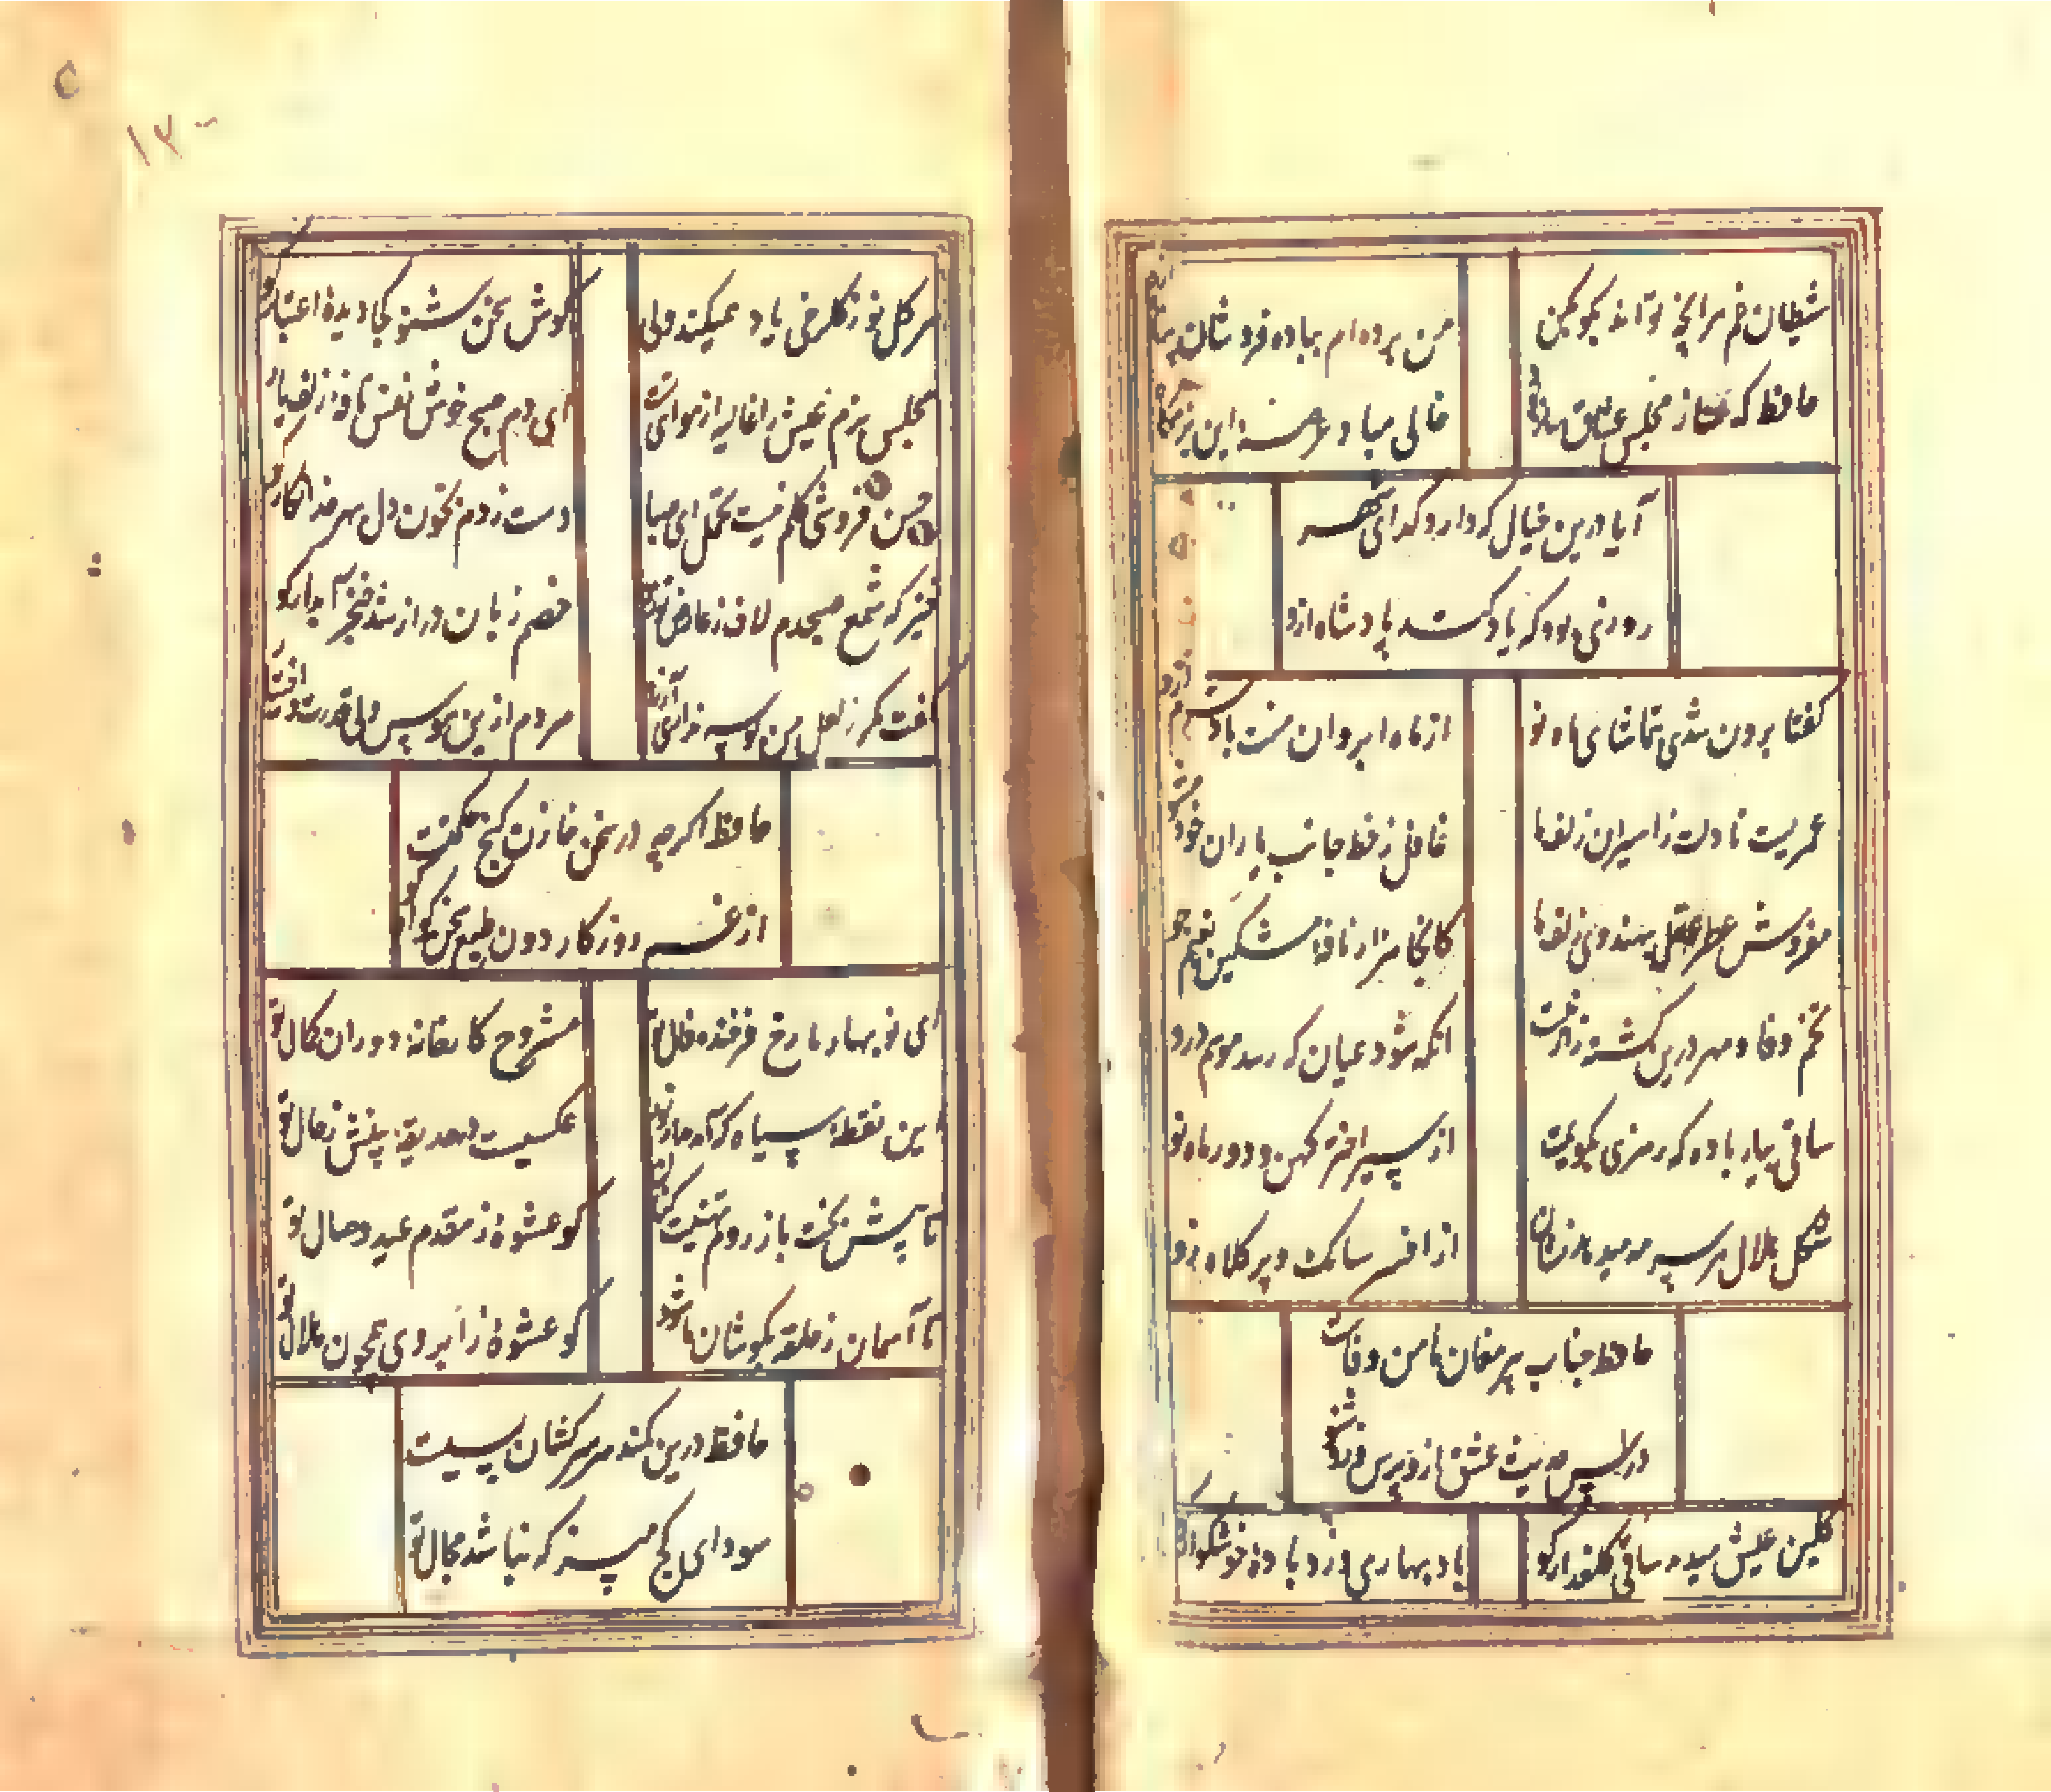 شیطان غم هر آنچه تواند بگو بکن
من برده ام بباده فروشان پناه
حافظ که ساز مجلس عشاق
خالی مباد عرصه این بزمگاه
آیا درین خیال که دارد گدای شهر
روزی بود که یاد کند پادشاه ازو
گفتا برون شدی تماشای ماه نو
از ماه ابروان منت باد شرم
عمریست تا دلت ز اسیران زلف ما
غافل ز حفظ جانب یاران خود
مفروش عطر عقل بهندوی زلف ما
کانجا هزار نافه مشکین به نیم جو
تخم وفا و مهر درین کشته زار
آنکه شود عیان که رسد موسم درو
ساقی بیار باده که رمزی بگویمت
از سیر اختر کهن و دور ماه نو
شکل هلال هر سر مه میدهد نشان
از افسر سیامک و پر کلاه زو
حافظ جناب پیر مغان مامن وفاست
درس حدیث عشق ازو پرس و زو شنو
گلبن عیش میدمد ساقی گلعذار کو
باد بهاری وزد باده خوشگوار
هر گل نو ز گلرخی یاد همیکند ولی
گوش سخن شنو کجا دیده اعتبار
مجلس بزم عیش را غالیه مراد نیست
ای دم صبح خوش نفس نافه زلف یار
حسن فروشی گلم نیست تحمل ای صبا
دست زدم بخون دل بهر خدا نگار
خیز که شمع صبحدم لاف ز عارض تو زد
خصم زبان دراز شد خنجر آبدار کو
گفت مگر ز لعل من بوسه نداری آرزو
مردم ازین هوس ولی قدرت و اختیار
حافظ اگر چه در سخن خازن گنج حکمتست
از غم روزگار دون طبع سخن گزار
ای نوبهار ما رخ فرخنده فال تو
مشروح کارخانه دوران کمال تو
این نقطه سیاه که آمد مدار نور
عکسیست در حدیقه بینش ز خال تو
تا پیش بخت باز روم تهنیت کنان
کو عشوه ز مقدم عید وصال تو
تا آسمان ز حلقه بگوشان ما شود
کو عشوه ز ابروی همچون هلال تو
حافظ درین کمند سر سرکشان بسیست
سودای کج مپز که نباشد مجال تو
۱۳۰